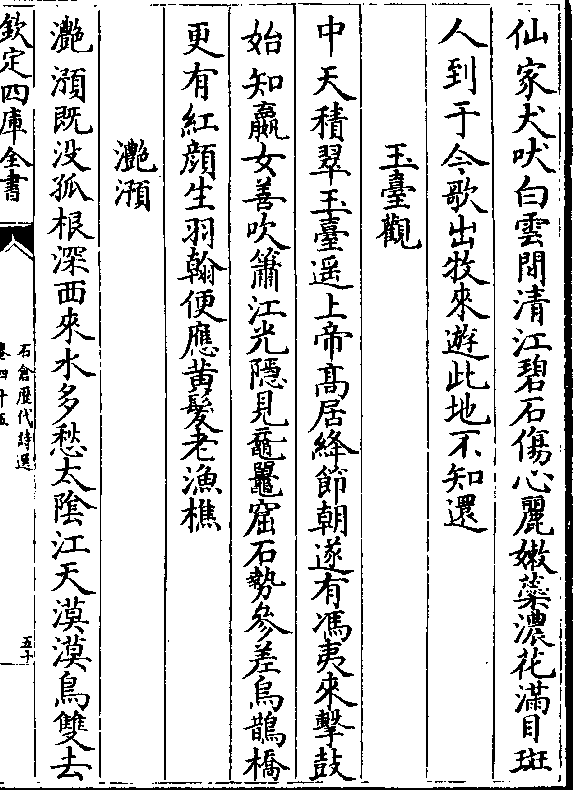 仙家犬吠白雲間清江碧石傷心麗嫩蘂濃花滿目斑
人到于今歌出牧來遊此地不知還
玉臺觀
中天積翠玉臺遥上帝髙居絳節朝遂有馮夷來擊鼓
始知嬴女善吹簫江光隱見黿鼉窟石勢參差烏鵲橋
更有紅顔生羽翰便應黄髮老漁樵
灔澦
灔澦既没孤根深西來水多愁太隂江天漠漠鳥雙去
欽定四庫全書
石倉歴代詩選
卷四十五
五十